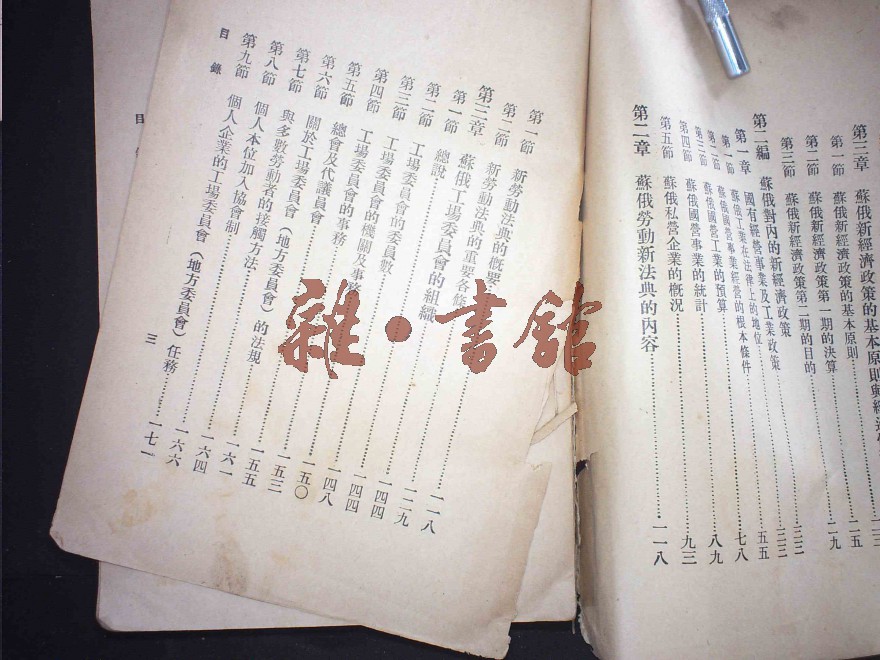 第三章 蘇俄新經濟政策的基本原則與經過
第一節 蘇俄新經濟政策的基本原則……一五
第二節 蘇俄新經濟政策第一期的決算……一九
第三節 蘇俄新經濟政策第二期的目的……二二
第二編 蘇俄對內的新經濟政策
第一章 國有經營事業及工業政策
第一節 蘇俄工業在法律上的地位……五五
第二節 蘇俄國營事業經營的根本條件……七八
第三節 蘇俄國營工業的預算……八九
第四節 蘇俄國營事業的統計……九三
第五節 蘇俄私營企業的概況
第二章 蘇俄勞動新法典的內容……一一八
第一節 新勞動法典的概要……一一八
第二節 新勞動法典的重要各條……一二九
第三章 蘇俄工場委員會的組織……一四四
第一節 總說……一四四
第二節 工場委員會的委員數……一四八
第三節 工場委員會的機關及事務……一五〇
第四節 工場委員會的事務……一五三
第五節 總會及代議員會……一五五
第六節 關於工場委員會(地方委員會)的法規……一六一
第七節 與多數勞動者的接觸方法……一六四
第八節 個人本位加入協會制……一六六
第九節 個人企業的工場委員會(地方委員會)任務……一七一
目錄 三
目
雜·書館